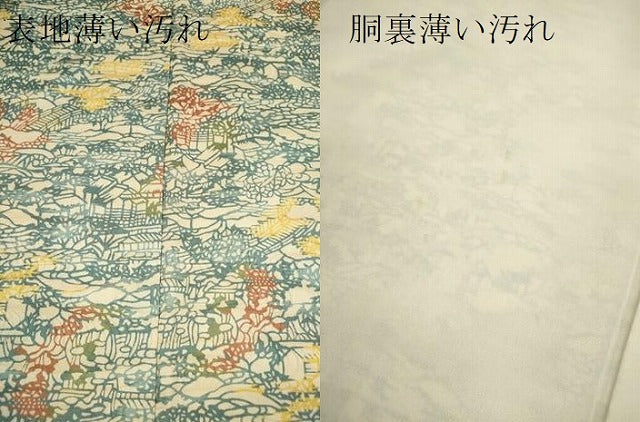 表地薄い汚れ
胴裏薄い汚れ